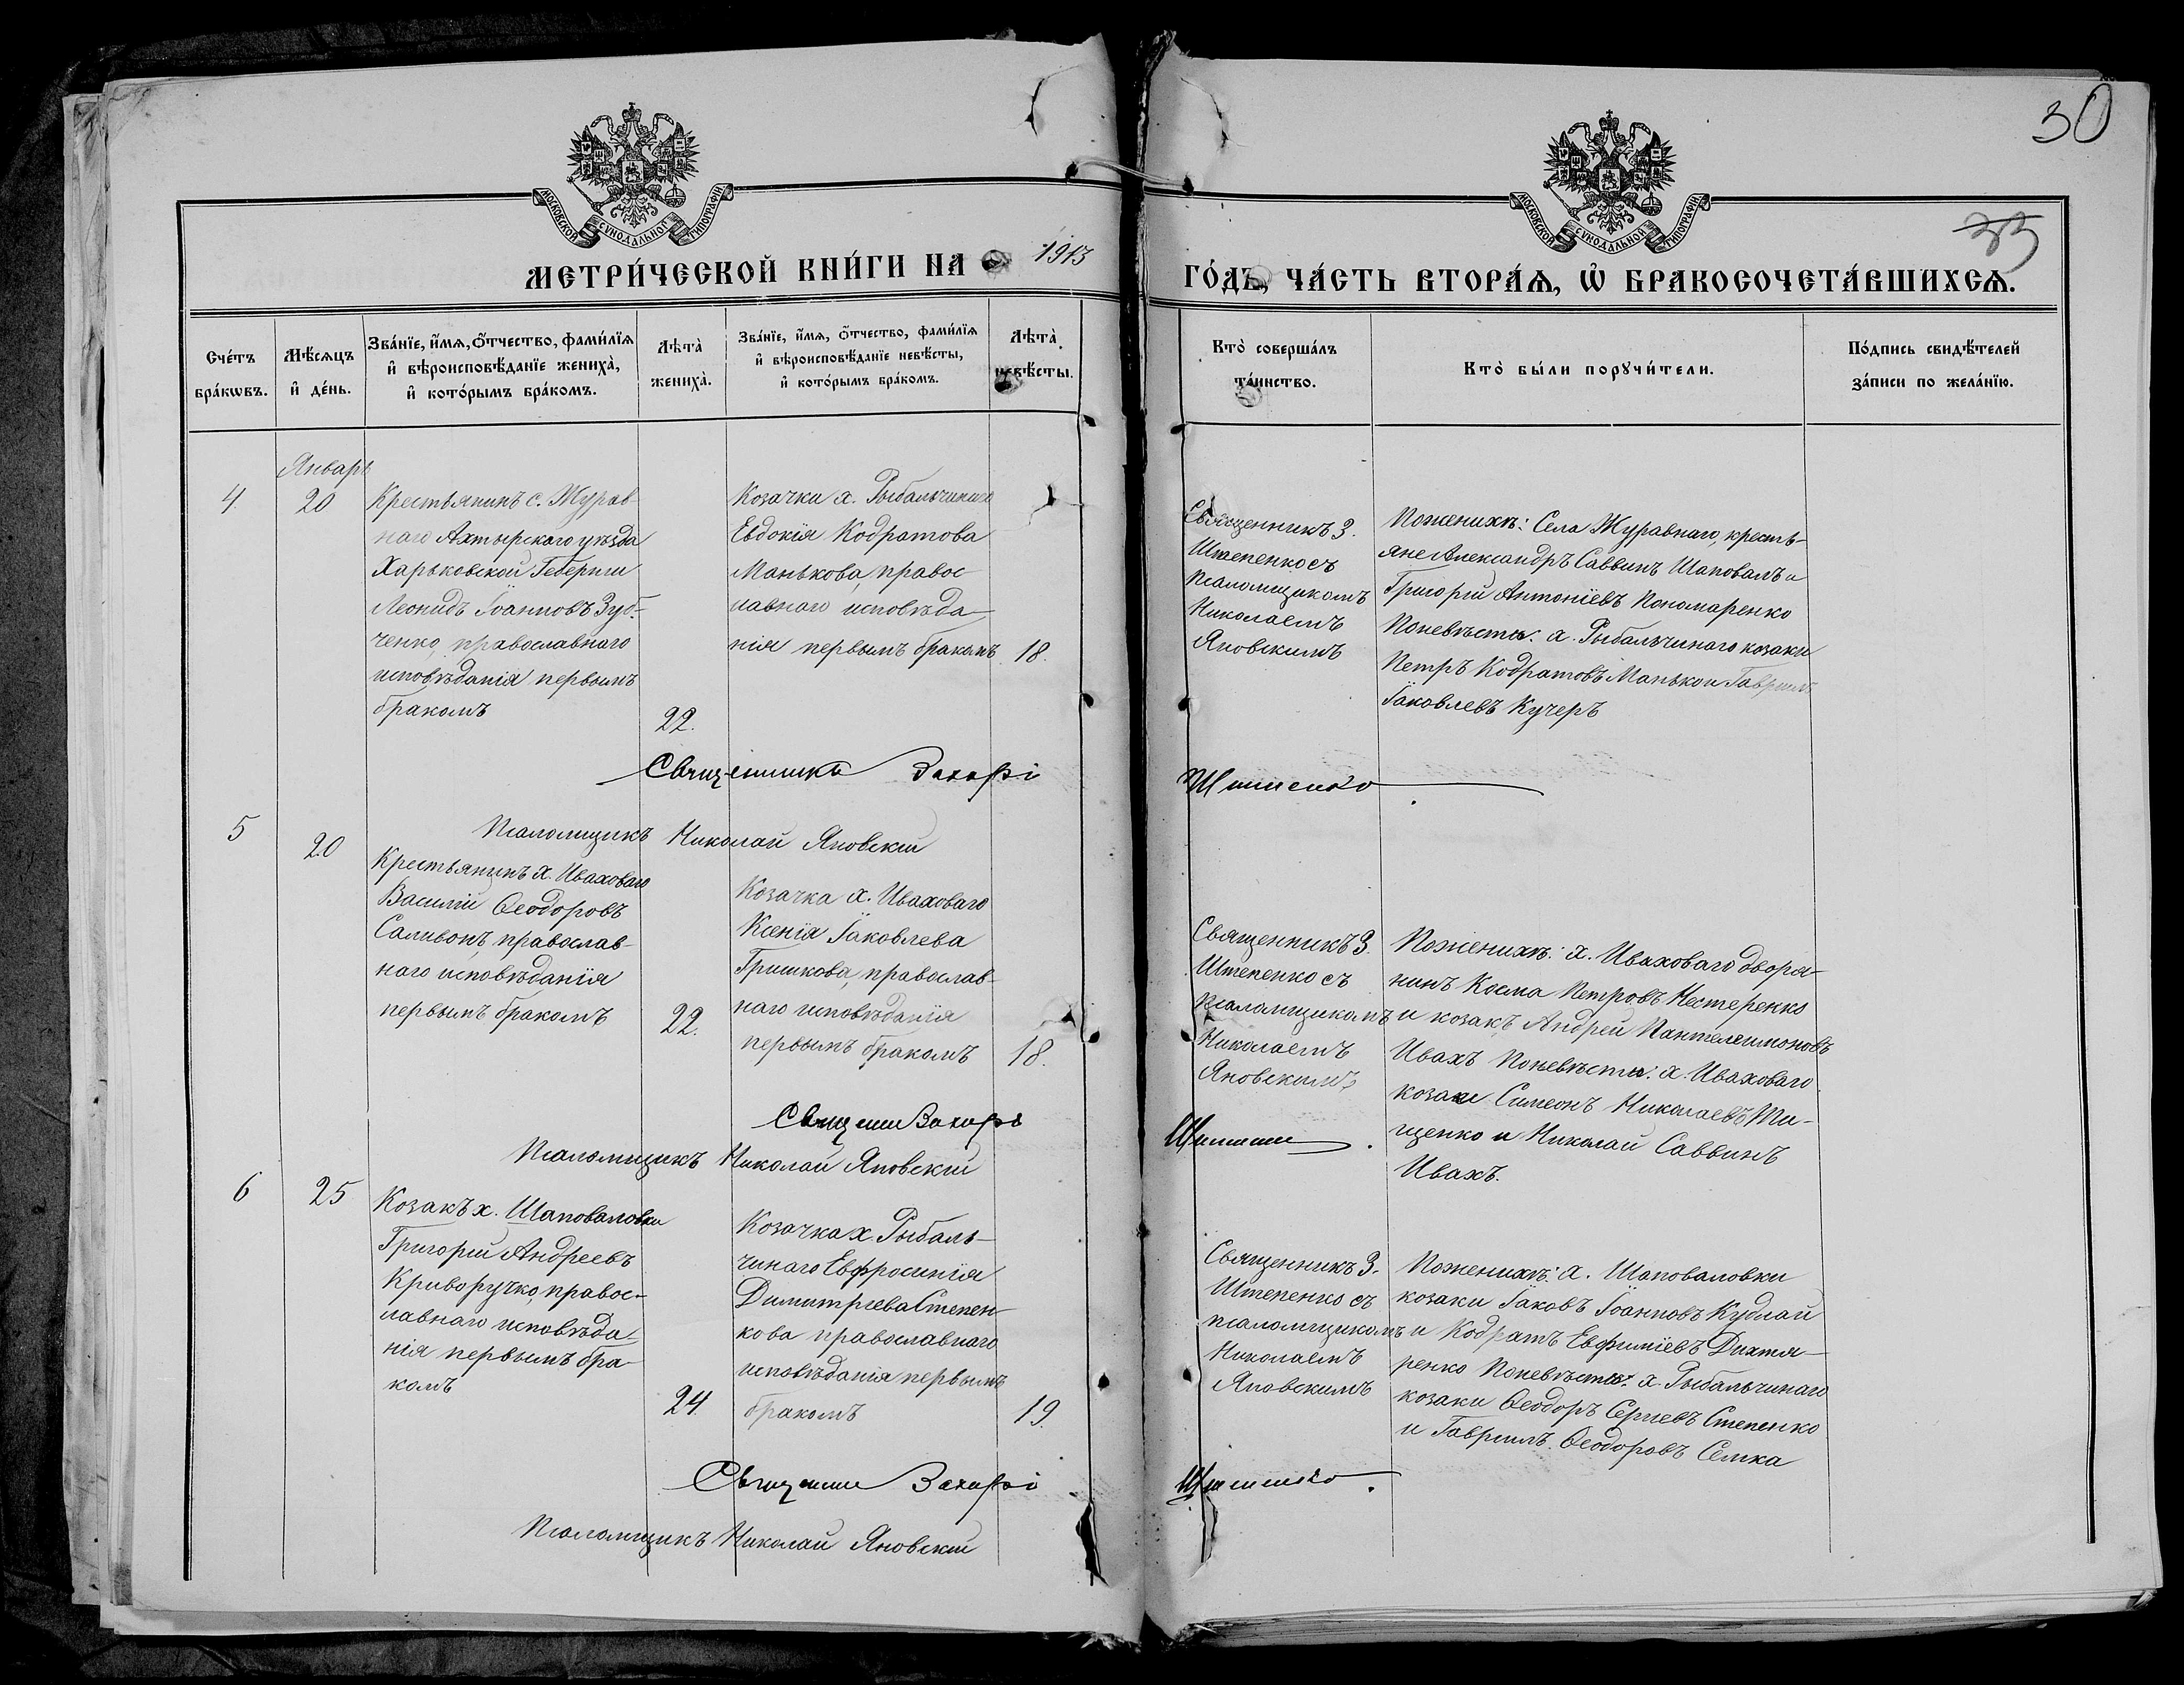 30
МОСКОВСКОЙ СУНОДАЛЬНОЙ ТИПОГРАФІИ
МОСКОВСКОЙ СУНОДАЛЬНОЙ ТИПОГРАФІИ
33
МЕТРИ́ЧЕСКОЙ КНИ́ГИ НА 1913
ГО́ДЪ, ЧА́СТЬ ВТОРА́Ѧ, Ѡ҆ БРАКОСОЧЕТА́ВШИХСѦ.
Сче́тъ бра́кѡвъ.
Мѣ́сяцъ и҆ де́нь.
Зва́нїе, и҆́мя, ѻ҆́тчество, фами́лїя и҆ вѣроисповѣ́данїе жениха̀, и҆ кото́рымъ бра́комъ.
Лѣта̀ жениха̀.
Зва́нїе, и҆́мя, ѻ҆́тчество, фами́лїя и҆ вѣроисповѣ́данїе невѣ́сты, и҆ кото́рымъ бра́комъ.
Лѣта̀ невѣ́сты.
Кто̀ соверша́лъ та́инство.
Кто̀ бы́ли порꙋчи́тели.
По́дпись свидѣ́телей за́писи по жела́нїю.
Январь
4.
20
Крестьянинъ с. Журав
наго Ахтырскаго уѣзда
Харьковской Губерніи
Леонидъ Іоанновъ Зуб-
ченко, православнаго
исповѣданія первымъ
бракомъ
22.
Козачки х. Рыбальчинаго
Евдокія Кодратова
Манькова, правос
лавнаго исповѣда
нія первымъ бракомъ
18.
Священникъ З.
Штепенко съ
псаломщикомъ
Николаемъ
Яновскимъ
Поженихѣ: Села Журавнаго, кресть-
яне Александръ Саввинъ Шаповалъ и
Григорій Антоніевъ Пономаренко
Поневѣстѣ: х. Рыбальчинаго козаки
Петръ Кодратовъ Манько и Гавріилъ
Іаковлевъ Кучеръ
Священникъ Захарі Штепенко
Псаломщикъ Николай Яновскій
5
20
Крестьянинъ х. Иваховаго
Василій Ѳеодоровъ
Саливонъ, православ-
наго исповѣданія
первымъ бракомъ
22.
Козачка х. Иваховаго
Ксенія Іаковлева
Гришкова, православ-
наго исповѣданія
первымъ бракомъ
18.
Священникъ З.
Штепенко съ
псаломщикомъ
Николаемъ
Яновскимъ
Поженихѣ: х. Иваховаго дворя-
нинъ Косма Петровъ Нестеренко
и козакъ Андрей Пантелеимоновъ
Ивахъ Поневѣстѣ: х. Иваховаго
козаки Симеонъ Николаевъ Ти-
щенко и Николай Саввинъ
Ивахъ.
Псаломщикъ Николай Яновскій
6
25
Козакъ х. Шаповаловки
Григорій Андреевъ
Криворучко, правос-
лавнаго исповѣда-
нія первымъ бра-
комъ
24.
Козачка х. Рыбаль-
чинаго Евфросинія
Димитріева Степен-
кова православнаго
исповѣданія первымъ
бракомъ
19.
Священникъ З.
Штепенко съ
псаломщикомъ
Николаемъ
Яновскимъ
Поженихѣ: х. Шаповаловки
козаки Іаковъ Іоанновъ Кудлай
и Кодратъ Евфиміевъ Дихтя-
ренко Поневѣстѣ: х. Рыбальчинаго
козаки Ѳеодоръ Сергіевъ Степенко
и Гавріилъ Ѳеодоровъ Семка
Псаломщикъ Николай Яновскій